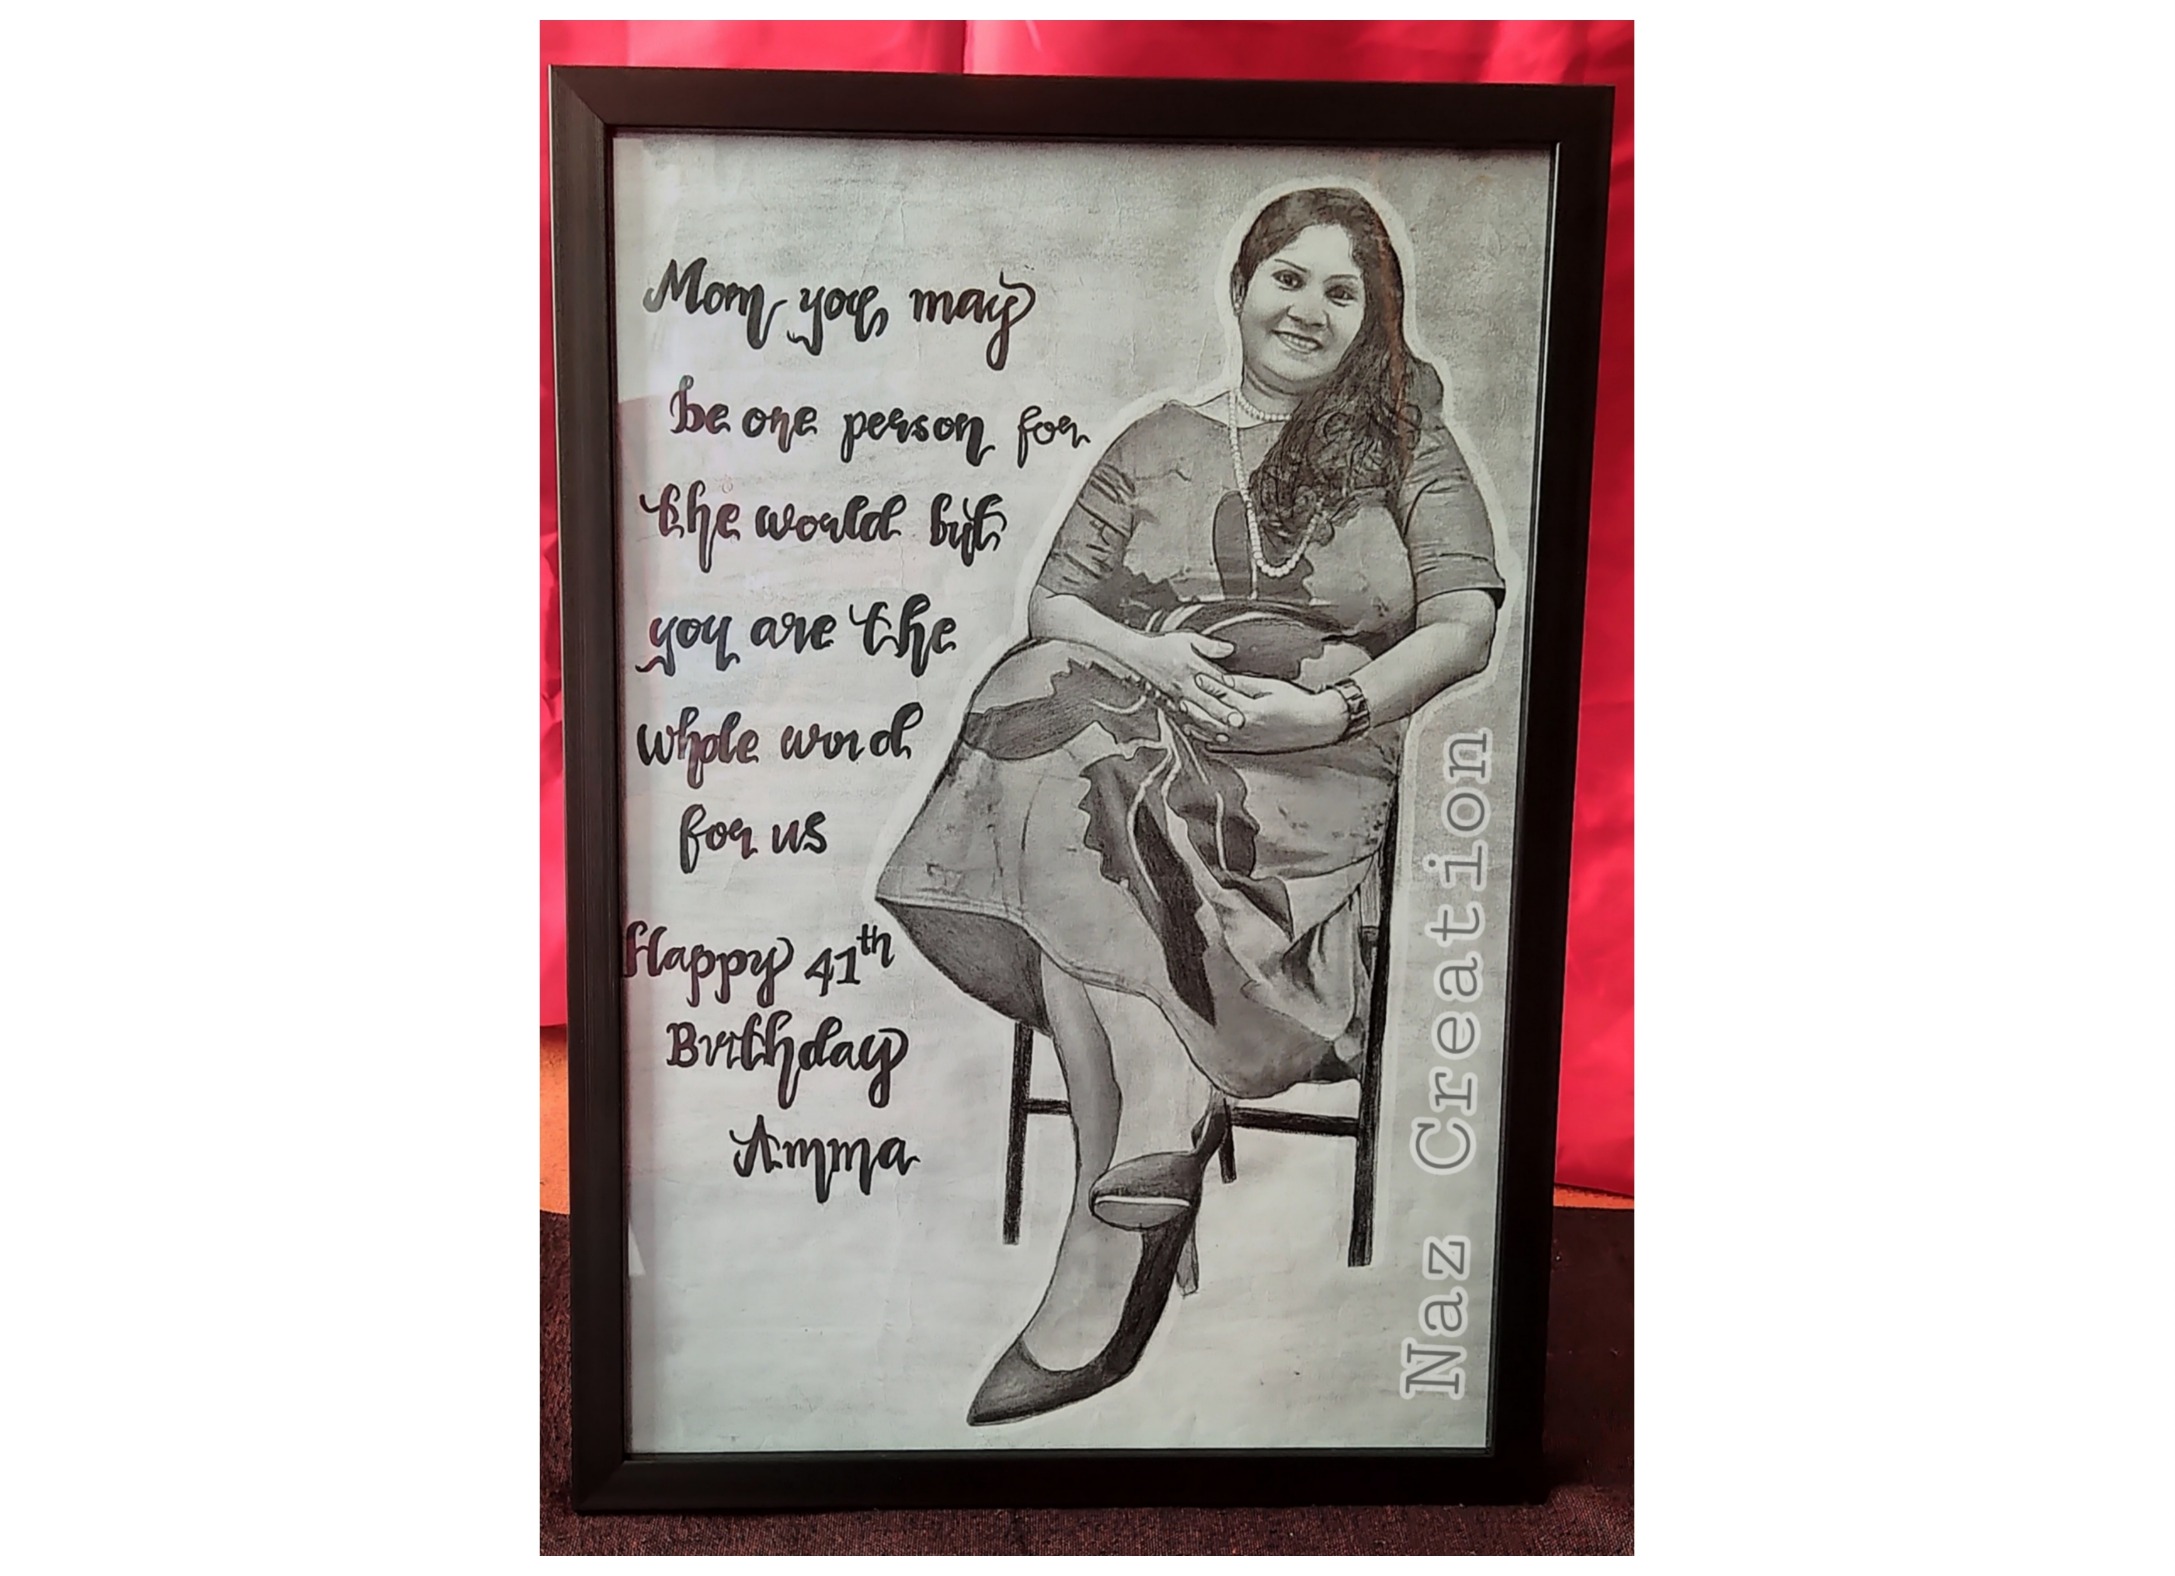 Mom you may
be one person for
the world but
you are the
whole world
for us
Happy 41th
Birthday
Amma
Naz Creation